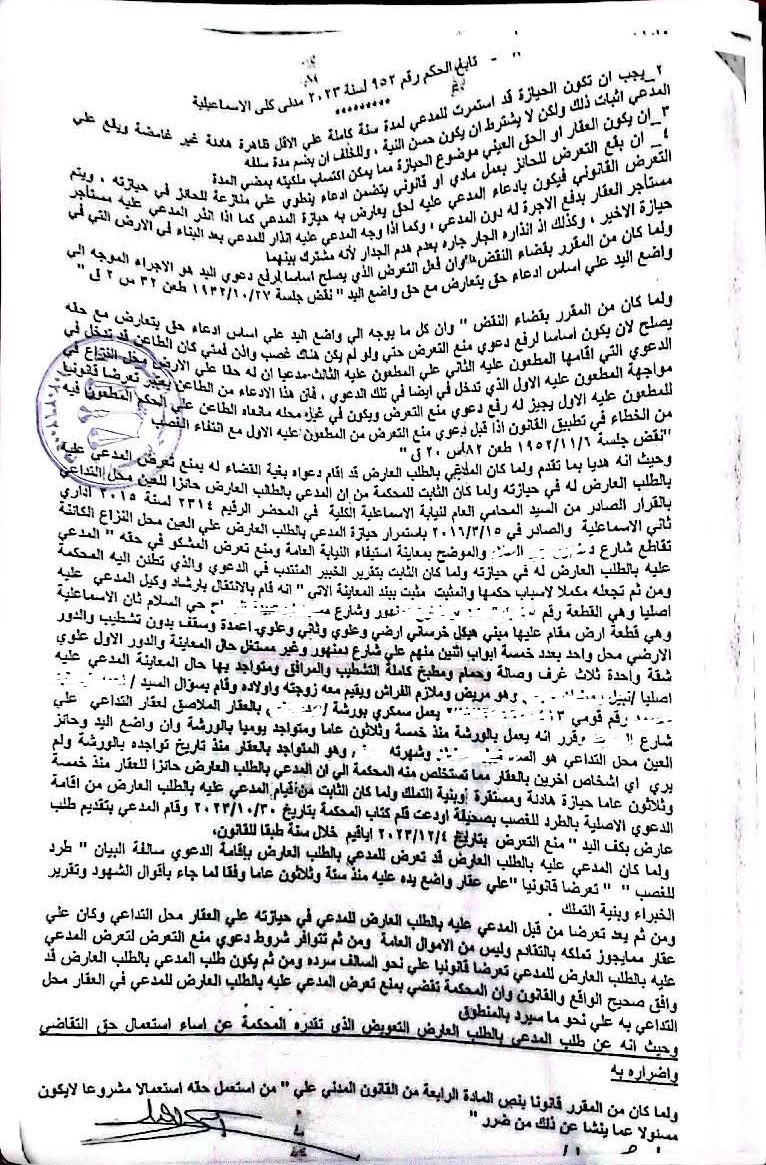 " - تابع الحكم رقم ٩٥٢ لسنة ٢٠٢٣ مدنى كلى الاسماعيلية
*********
٢_يجب ان تكون الحيازة قد استمرت للمدعي لمدة سنة كاملة علي الاقل ظاهرة هادئة غير غامضة ويقع علي
المدعي اثبات ذلك ولكن لا يشترط ان يكون حسن النية ، وللخلف ان يضم مدة سلفه
٣_ان يكون العقار او الحق العيني موضوع الحيازة مما يمكن اكتساب ملكيته بمضي المدة
٤_ ان يقع التعرض للحائز بعمل مادي او قانوني يتضمن ادعاء ينطوي علي منازعة للحائز في حيازته ، ويتم
التعرض القانوني فيكون بادعاء المدعي عليه لحق يعارض به حيازة المدعي كما اذا انذر المدعي عليه مستأجر
مستأجر العقار بدفع الاجرة له دون المدعي ، وكما اذا وجه المدعي عليه انذار للمدعي بعد البناء في الارض التي في
حيازة الاخير ، وكذلك اذ انذاره الجار جاره بعدم هدم الجدار لأنه مشترك بينهما
ولما كان من المقرر بقضاء النقض " وان فعل التعرض الذي يصلح اساسا لرفع دعوي اليد هو الاجراء الموجه الي
واضع اليد علي اساس ادعاء حق يتعارض مع حق واضع اليد " نقض جلسة ١٩٣٢/١٠/٢٧ طعن ٣٢ س ٢ ق "
ولما كان من المقرر بقضاء النقض " وان كل ما يوجه الي واضع اليد علي اساس ادعاء حق يتعارض مع حقه
يصلح لان يكون اساسا لرفع دعوي منع التعرض حتي ولو لم يكن هناك غصب واذن فمتي كان الطاعن قد تدخل في
الدعوي التي اقامها المطعون عليه الثاني علي المطعون عليه الثالث مدعيا ان له حقا علي الارض محل النزاع في
مواجهة المطعون عليه الاول الذي تدخل في ايضا في تلك الدعوي ، فان هذا الادعاء من الطاعن يعتبر تعرضا قانونيا
للمطعون عليه الاول يجيز له رفع دعوي منع التعرض ويكون في غير محله مانعاه الطاعن علي الحكم المطعون فيه
من الخطاء في تطبيق القانون اذا قبل دعوي منع التعرض من المطعون عليه الاول مع انتفاء الغصب
"نقض جلسة ١٩٥٢/١١/٦ طعن ٨٢ س ٢٠ ق "
وحيث انه هديا بما تقدم ولما كان المدعي بالطلب العارض قد اقام دعواه بغية القضاء له بمنع تعرض المدعي عليه
بالطلب العارض له في حيازته ولما كان الثابت للمحكمة من ان المدعي بالطالب العارض حائزا للعين محل التداعي
بالقرار الصادر من السيد المحامي العام لنيابة الاسماعلية الكلية في المحضر الرقيم ٢٣١٤ لسنة ٢٠١٥ اداري
ثاني الاسماعلية والصادر في ٢٠١٦/٣/١٥ باستمرار حيازة المدعي بالطلب العارض علي العين محل النزاع الكائنة
تقاطع شارع والموضح بمعاينة استيفاء النيابة العامة ومنع تعرض المشكو في حقه " المدعي
عليه بالطلب العارض له في حيازته ولما كان الثابت بتقرير الخبير المنتدب في الدعوي والذي تطئن اليه المحكمة
ومن ثم تجعله مكملا لاسباب حكمها والمثبت مثبت ببند المعاينة الاتي " انه قام بالانتقال بارشاد وكيل المدعي عليه
اصليا وهي القطعة رقم وشارع حي السلام ثان الاسماعلية
وهي قطعة ارض مقام عليها مبني هيكل خرساني ارضي وعلوي وثاني وعلوي اعمدة وسقف بدون تشطيب والدور
الارضي محل واحد بعدد خمسة ابواب اثنين منهم علي شارع دمنهور وغير مستغل حال المعاينة والدور الاول علوي
شقة واحدة ثلاث غرف وصالة وحمام ومطبخ كاملة التشطيب والمرافق ومتواجد بها حال المعاينة المدعي عليه
اصليا / وهو مريض وملازم الفراش ويقيم معه زوجته واولاده وقام بسؤال السيد /
رقم قومي يعمل سمكري بورشة بالعقار الملاصق لعقار التداعي علي
شارع وقرر انه يعمل بالورشة منذ خمسة وثلاثون عاما ومتواجد يوميا بالورشة وان واضع اليد وحائز
العين محل التداعي هو وشهرته ، وهو المتواجد بالعقار منذ تاريخ تواجده بالورشة ولم
يري اي اشخاص اخرين بالعقار مما تستخلص منه المحكمة الي ان المدعي بالطلب العارض حائزا للعقار منذ خمسة
وثلاثون عاما حيازة هادئة ومستقرة وبنية التملك ولما كان الثابت من قيام المدعي عليه بالطلب العارض من اقامة
الدعوي الاصلية بالطرد للغصب بصحيفة اودعت قلم كتاب المحكمة بتاريخ ٢٠٢٣/١٠/٣٠ وقام المدعي بتقديم طلب
عارض بكف اليد " منع التعرض بتاريخ ٢٠٢٣/١٢/٤ اياقيم خلال سنة طبقا للقانون.
ولما كان المدعي عليه بالطلب العارض قد تعرض للمدعي بالطلب العارض بإقامة الدعوي سالفة البيان " طرد
للغصب " " تعرضا قانونيا "علي عقار واضع يده عليه منذ ستة وثلاثون عاما وفقا لما جاء بأقوال الشهود وتقرير
الخبراء وبنية التملك .
ومن ثم يعد تعرضا من قبل المدعي عليه بالطلب العارض للمدعي في حيازته علي العقار محل التداعي وكان علي
عقار ممايجوز تملكه بالتقادم وليس من الاموال العامة ومن ثم تتوافر شروط دعوي منع التعرض لتعرض المدعي
عليه بالطلب العارض للمدعي تعرضا قانونيا علي نحو السالف سرده ومن ثم يكون طلب المدعي بالطلب العارض قد
وافق صحيح الواقع والقانون وان المحكمة تقضي بمنع تعرض المدعي عليه بالطلب العارض للمدعي في العقار محل
التداعي به علي نحو ما سيرد بالمنطوق
وحيث انه عن طلب المدعي بالطلب العارض التعويض الذي تقدره المحكمة عن اساء استعمال حق التقاضي
واضراره به
ولما كان من المقرر قانونا بنص المادة الرابعة من القانون المدني علي " من استعمل حقه استعمالا مشروعا لايكون
مسئولا عما ينشا عن ذلك من ضرر "